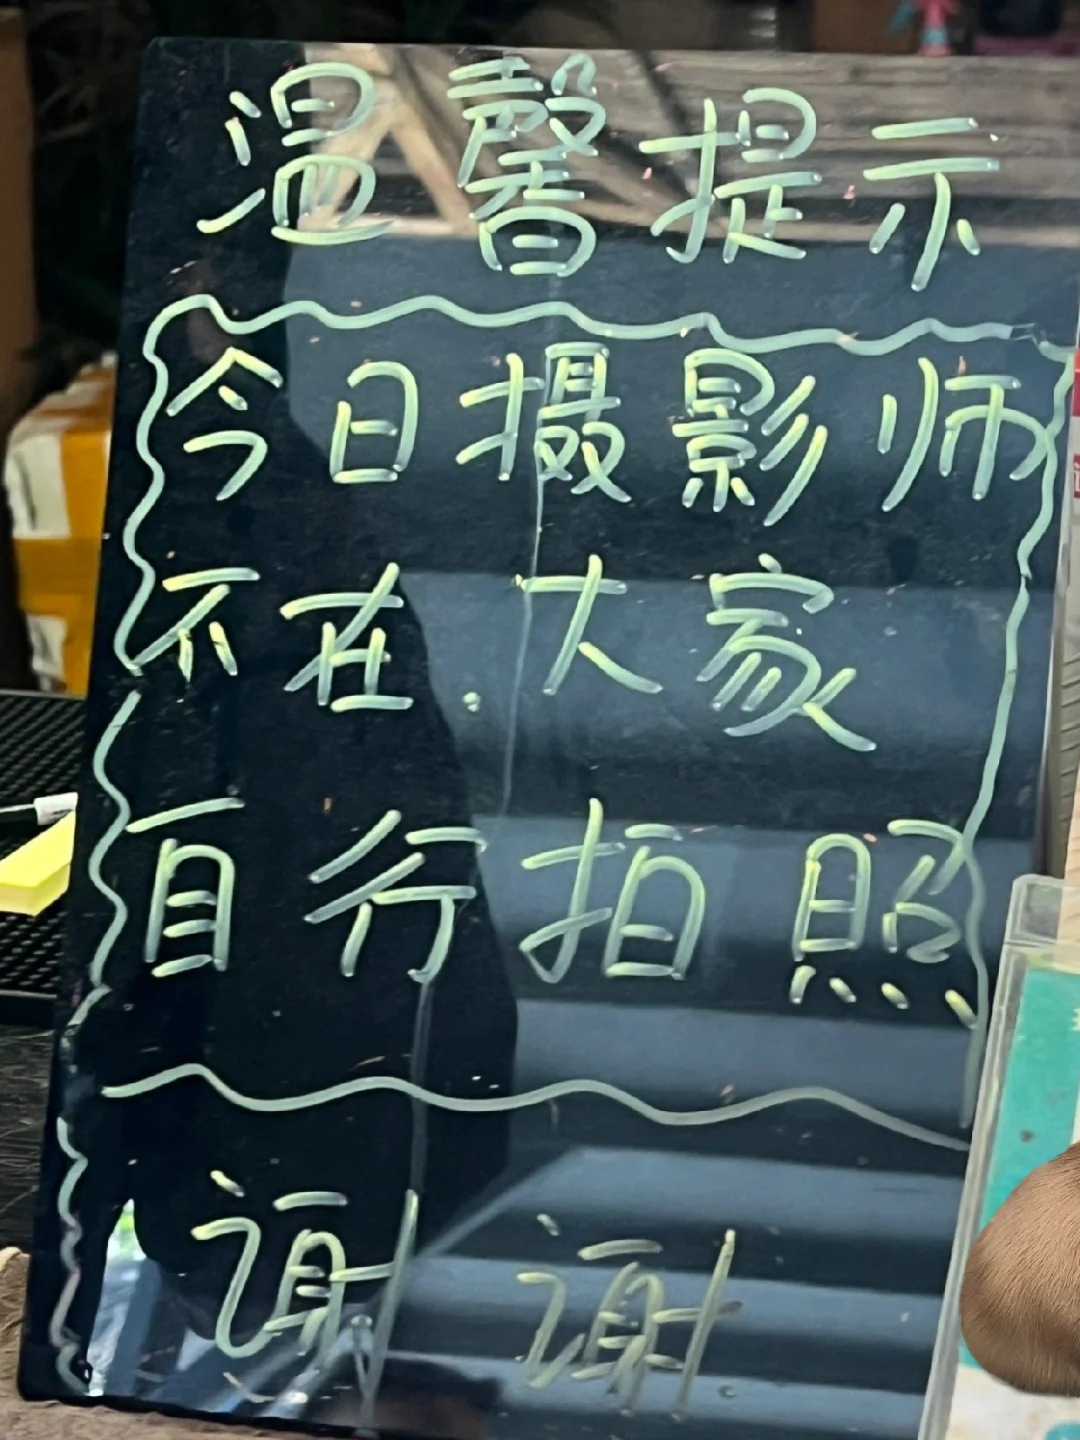 温馨提示
今日摄影师
不在.大家
自行拍照
谢谢